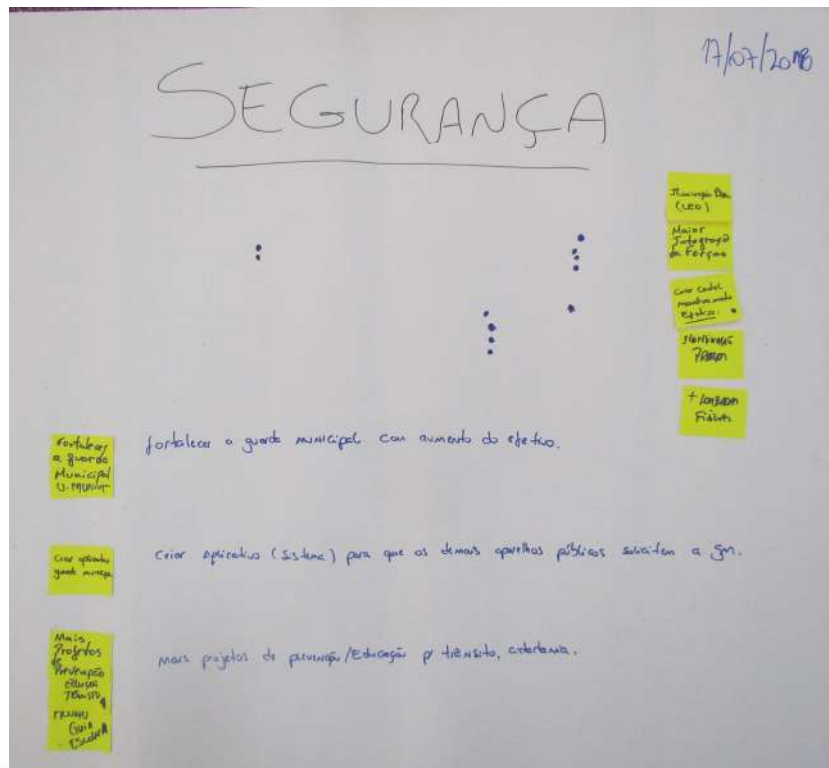 17/07/2018
SEGURANÇA
(LED)
Maior
Integração
de Forças
Criar Central
monitoramento
Iluminação
Praças
+ Lombadas
Físicas
Fortalecer
a guarda
Municipal
fortalecer a guarda municipal com aumento do efetivo.
Criar aplicativo
guarda municipal
Criar aplicativo (sistema) para que os demais aparelhos públicos solicitem a GM.
Mais
Projetos
de
Prevenção
Educação
Trânsito
Guia
Escolar
mais projetos de prevenção/Educação p/ trânsito, cidadania.